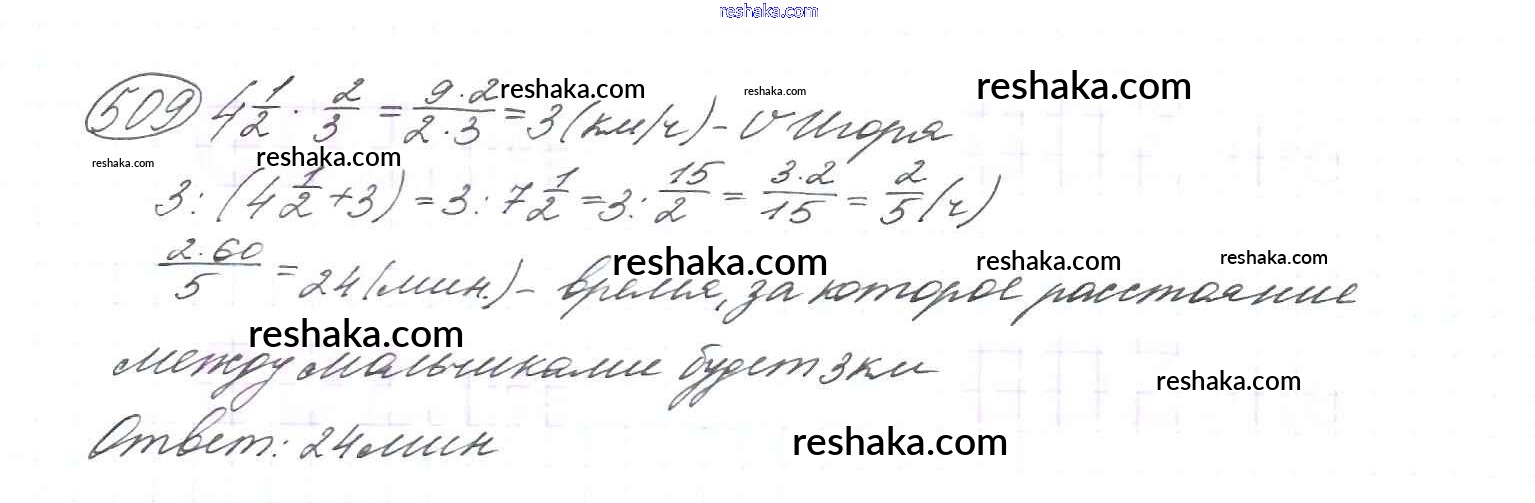 reshaka.com
509 4 1/2 · 2/3 = 9·2/2·3 = 3 (км/ч) - V Игоря
reshaka.com reshaka.com reshaka.com
reshaka.com reshaka.com
3 : (4 1/2 + 3) = 3 : 7 1/2 = 3 : 15/2 = 3·2/15 = 2/5 (ч)
2·60/5 = 24 (мин.) - время, за которое расстояние
reshaka.com reshaka.com reshaka.com
reshaka.com
между мальчиками будет 3 км
reshaka.com
Ответ: 24 мин
reshaka.com